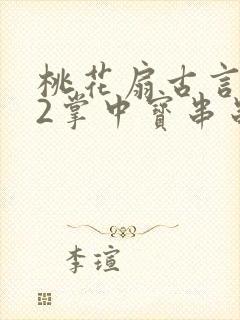 桃花扇古言
2掌中寶串
李瑄